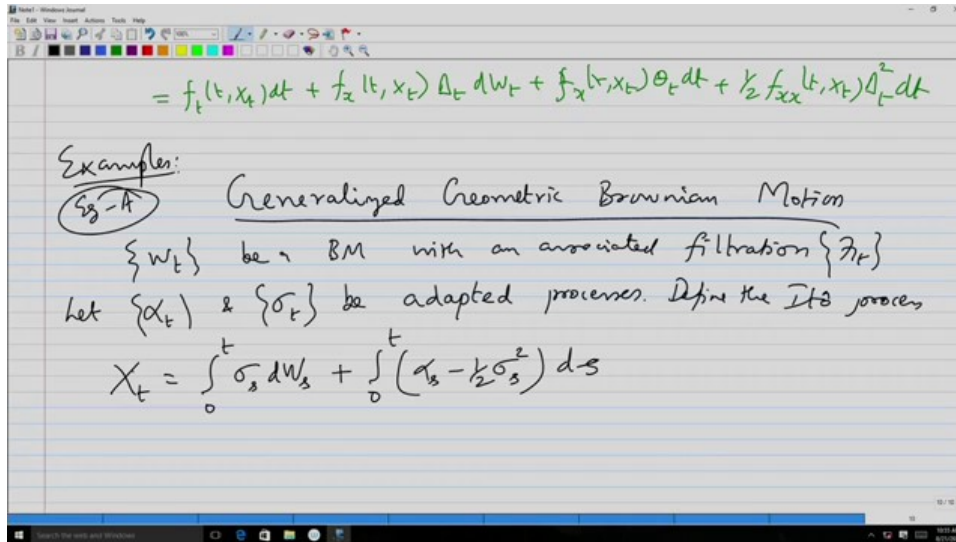 Note1 - Windows Journal
File Edit View Insert Actions Tools Help
= f_t(t, X_t) dt + f_x(t, X_t) Δ_t dW_t + f_x(t, X_t) Θ_t dt + 1/2 f_xx(t, X_t) Δ_t^2 dt
Examples:
Eg-A Generalized Geometric Brownian Motion
{W_t} be a BM with an associated filtration {F_t}
Let {α_t} & {σ_t} be adapted processes. Define the Itô process
X_t = ∫_0^t σ_s dW_s + ∫_0^t (α_s - 1/2 σ_s^2) ds
12/12
Search the web and Windows